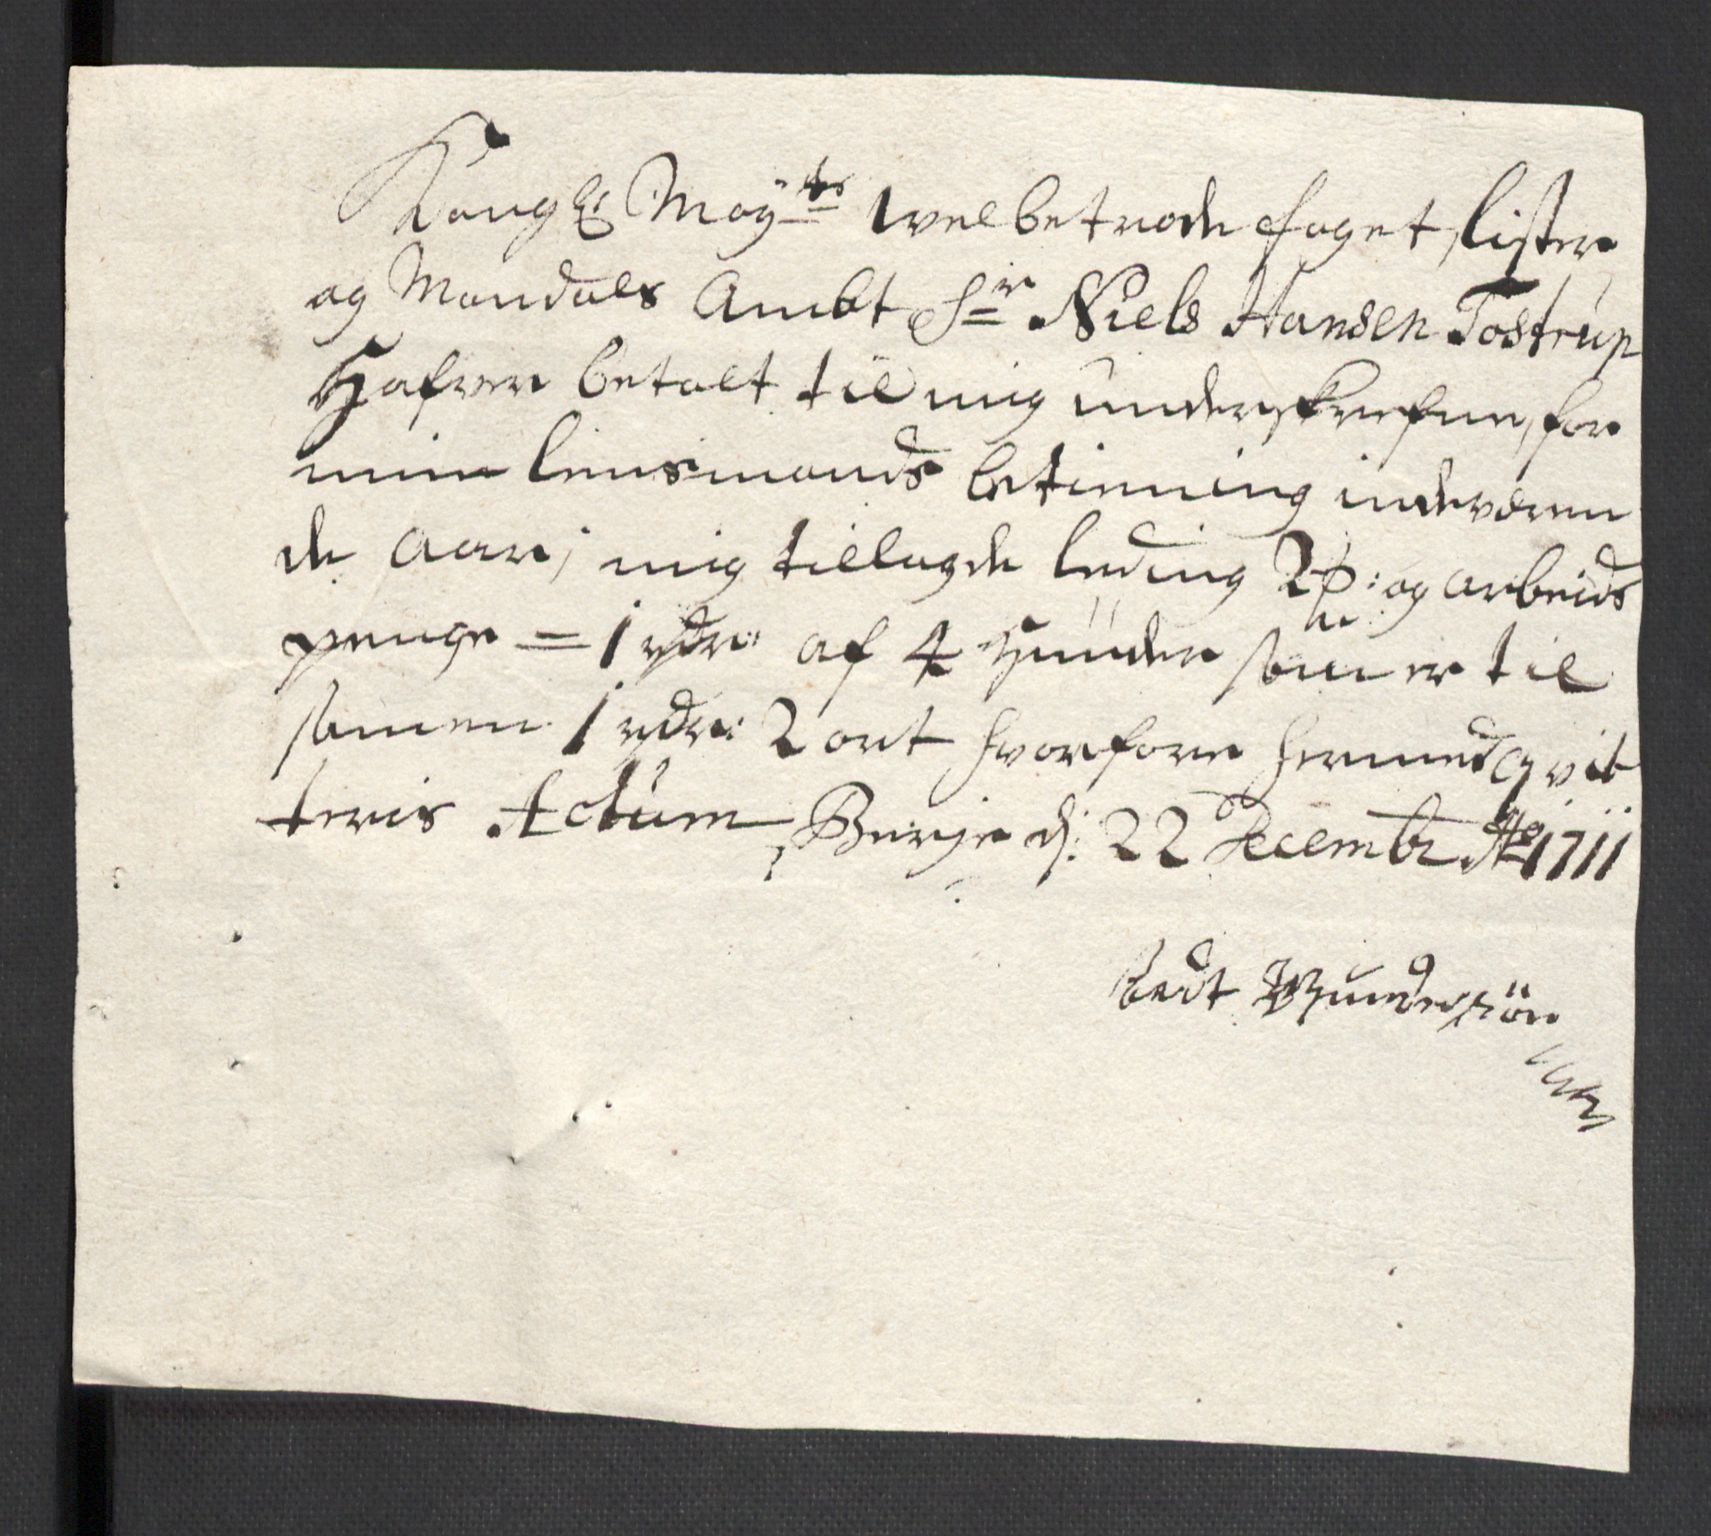 Kongl: Maÿts welbetrode foget, lister
og Mandals Ambt Sr Niels Hansen Tostrup
Hafver betalt til mig underskrefne, for
min lensmands betienning indeværen
de aar, mig tillagde leding 2 og arbeids
penge = 1 rdr: af 4 Hunder som er til
samen 1 rdr: 2 ort hvorfore hermed qvit
teris Actum Berge d: 22 Decembr Ao 1711
Gundersön